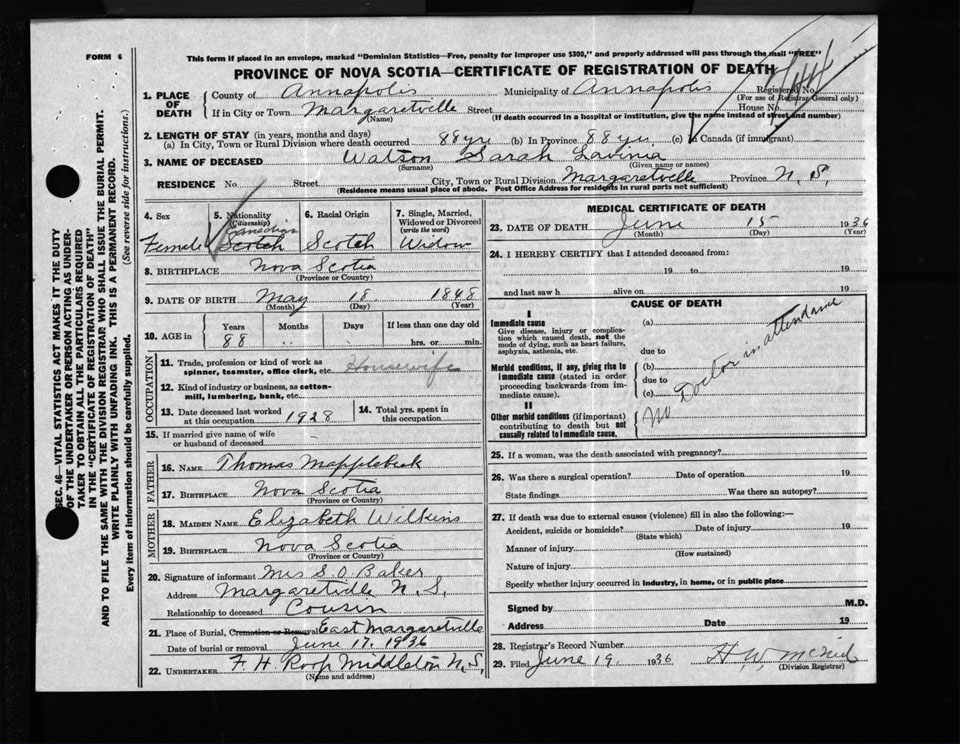 FORM 6
This form if placed in an envelope, marked "Dominion Statistics—Free, penalty for improper use $300," and properly addressed will pass through the mail "FREE"
PROVINCE OF NOVA SCOTIA—CERTIFICATE OF REGISTRATION OF DEATH
1. PLACE OF DEATH
County of Annapolis Municipality of Annapolis Registered No.
(For use of Registrar-General only)
If in City or Town Margaretville Street House No.
(Name) (If death occurred in a hospital or institution, give the name instead of street and number)
2. LENGTH OF STAY (in years, months and days)
(a) In City, Town or Rural Division where death occurred 88 yrs (b) In Province 88 yrs (c) In Canada (if immigrant)
3. NAME OF DECEASED Watson Sarah Lavinia
(Surname) (Given name or names)
RESIDENCE No Street City, Town or Rural Division Margaretville Province N. S.
(Residence means usual place of abode. Post Office Address for residents in rural parts not sufficient)
4. Sex
Female
5. Nationality
(Citizenship)
Canadian
Scotch
6. Racial Origin
Scotch
7. Single, Married, Widowed or Divorced
(write the word)
Widow
8. BIRTHPLACE Nova Scotia
(Province or Country)
9. DATE OF BIRTH May 18 1848
(Month) (Day) (Year)
10. AGE in Years Months Days If less than one day old
88 hrs. or min.
OCCUPATION
11. Trade, profession or kind of work as spinner, teamster, office clerk, etc. Housewife
12. Kind of industry or business, as cotton-mill, lumbering, bank, etc.
13. Date deceased last worked at this occupation 1928
14. Total yrs. spent in this occupation
15. If married give name of wife or husband of deceased
FATHER
16. NAME Thomas Mapplebeck
17. BIRTHPLACE Nova Scotia
(Province or Country)
MOTHER
18. MAIDEN NAME Elizabeth Wilkins
19. BIRTHPLACE Nova Scotia
(Province or Country)
20. Signature of informant Mrs S. O. Baker
Address Margaretville N. S.
Relationship to deceased Cousin
21. Place of Burial, Cremation or Removal East Margaretville
Date of burial or removal June 17. 1936
22. UNDERTAKER F. H. Roop Middleton N. S.
(Name and address)
MEDICAL CERTIFICATE OF DEATH
23. DATE OF DEATH June 15 1936
(Month) (Day) (Year)
24. I HEREBY CERTIFY that I attended deceased from:
19 to 19
and last saw h alive on 19
CAUSE OF DEATH
I
Immediate cause
Give disease, injury or complication which caused death, not the mode of dying, such as heart failure, asphyxia, asthenia, etc.
(a)
due to
Morbid conditions, if any, giving rise to immediate cause (stated in order proceeding backwards from immediate cause).
(b)
due to
(c)
No Doctor in attendance
II
Other morbid conditions (if important) contributing to death but not causally related to immediate cause.
25. If a woman, was the death associated with pregnancy?
26. Was there a surgical operation? Date of operation 19
State findings Was there an autopsy?
27. If death was due to external causes (violence) fill in also the following:—
Accident, suicide or homicide? Date of injury 19
(State which)
Manner of injury
(How sustained)
Nature of injury
Specify whether injury occurred in industry, in home, or in public place
Signed by M.D.
Address Date 19
28. Registrar's Record Number
29. Filed June 19. 1936 H. W. McNeil
(Division Registrar)
SEC. 46—VITAL STATISTICS ACT MAKES IT THE DUTY
OF THE UNDERTAKER OR PERSON ACTING AS UNDER-
TAKER TO OBTAIN ALL THE PARTICULARS REQUIRED
IN THE "CERTIFICATE OF REGISTRATION OF DEATH"
AND TO FILE THE SAME WITH THE DIVISION REGISTRAR WHO SHALL ISSUE THE BURIAL PERMIT.
WRITE PLAINLY WITH UNFADING INK. THIS IS A PERMANENT RECORD.
Every item of information should be carefully supplied. (See reverse side for instructions.)